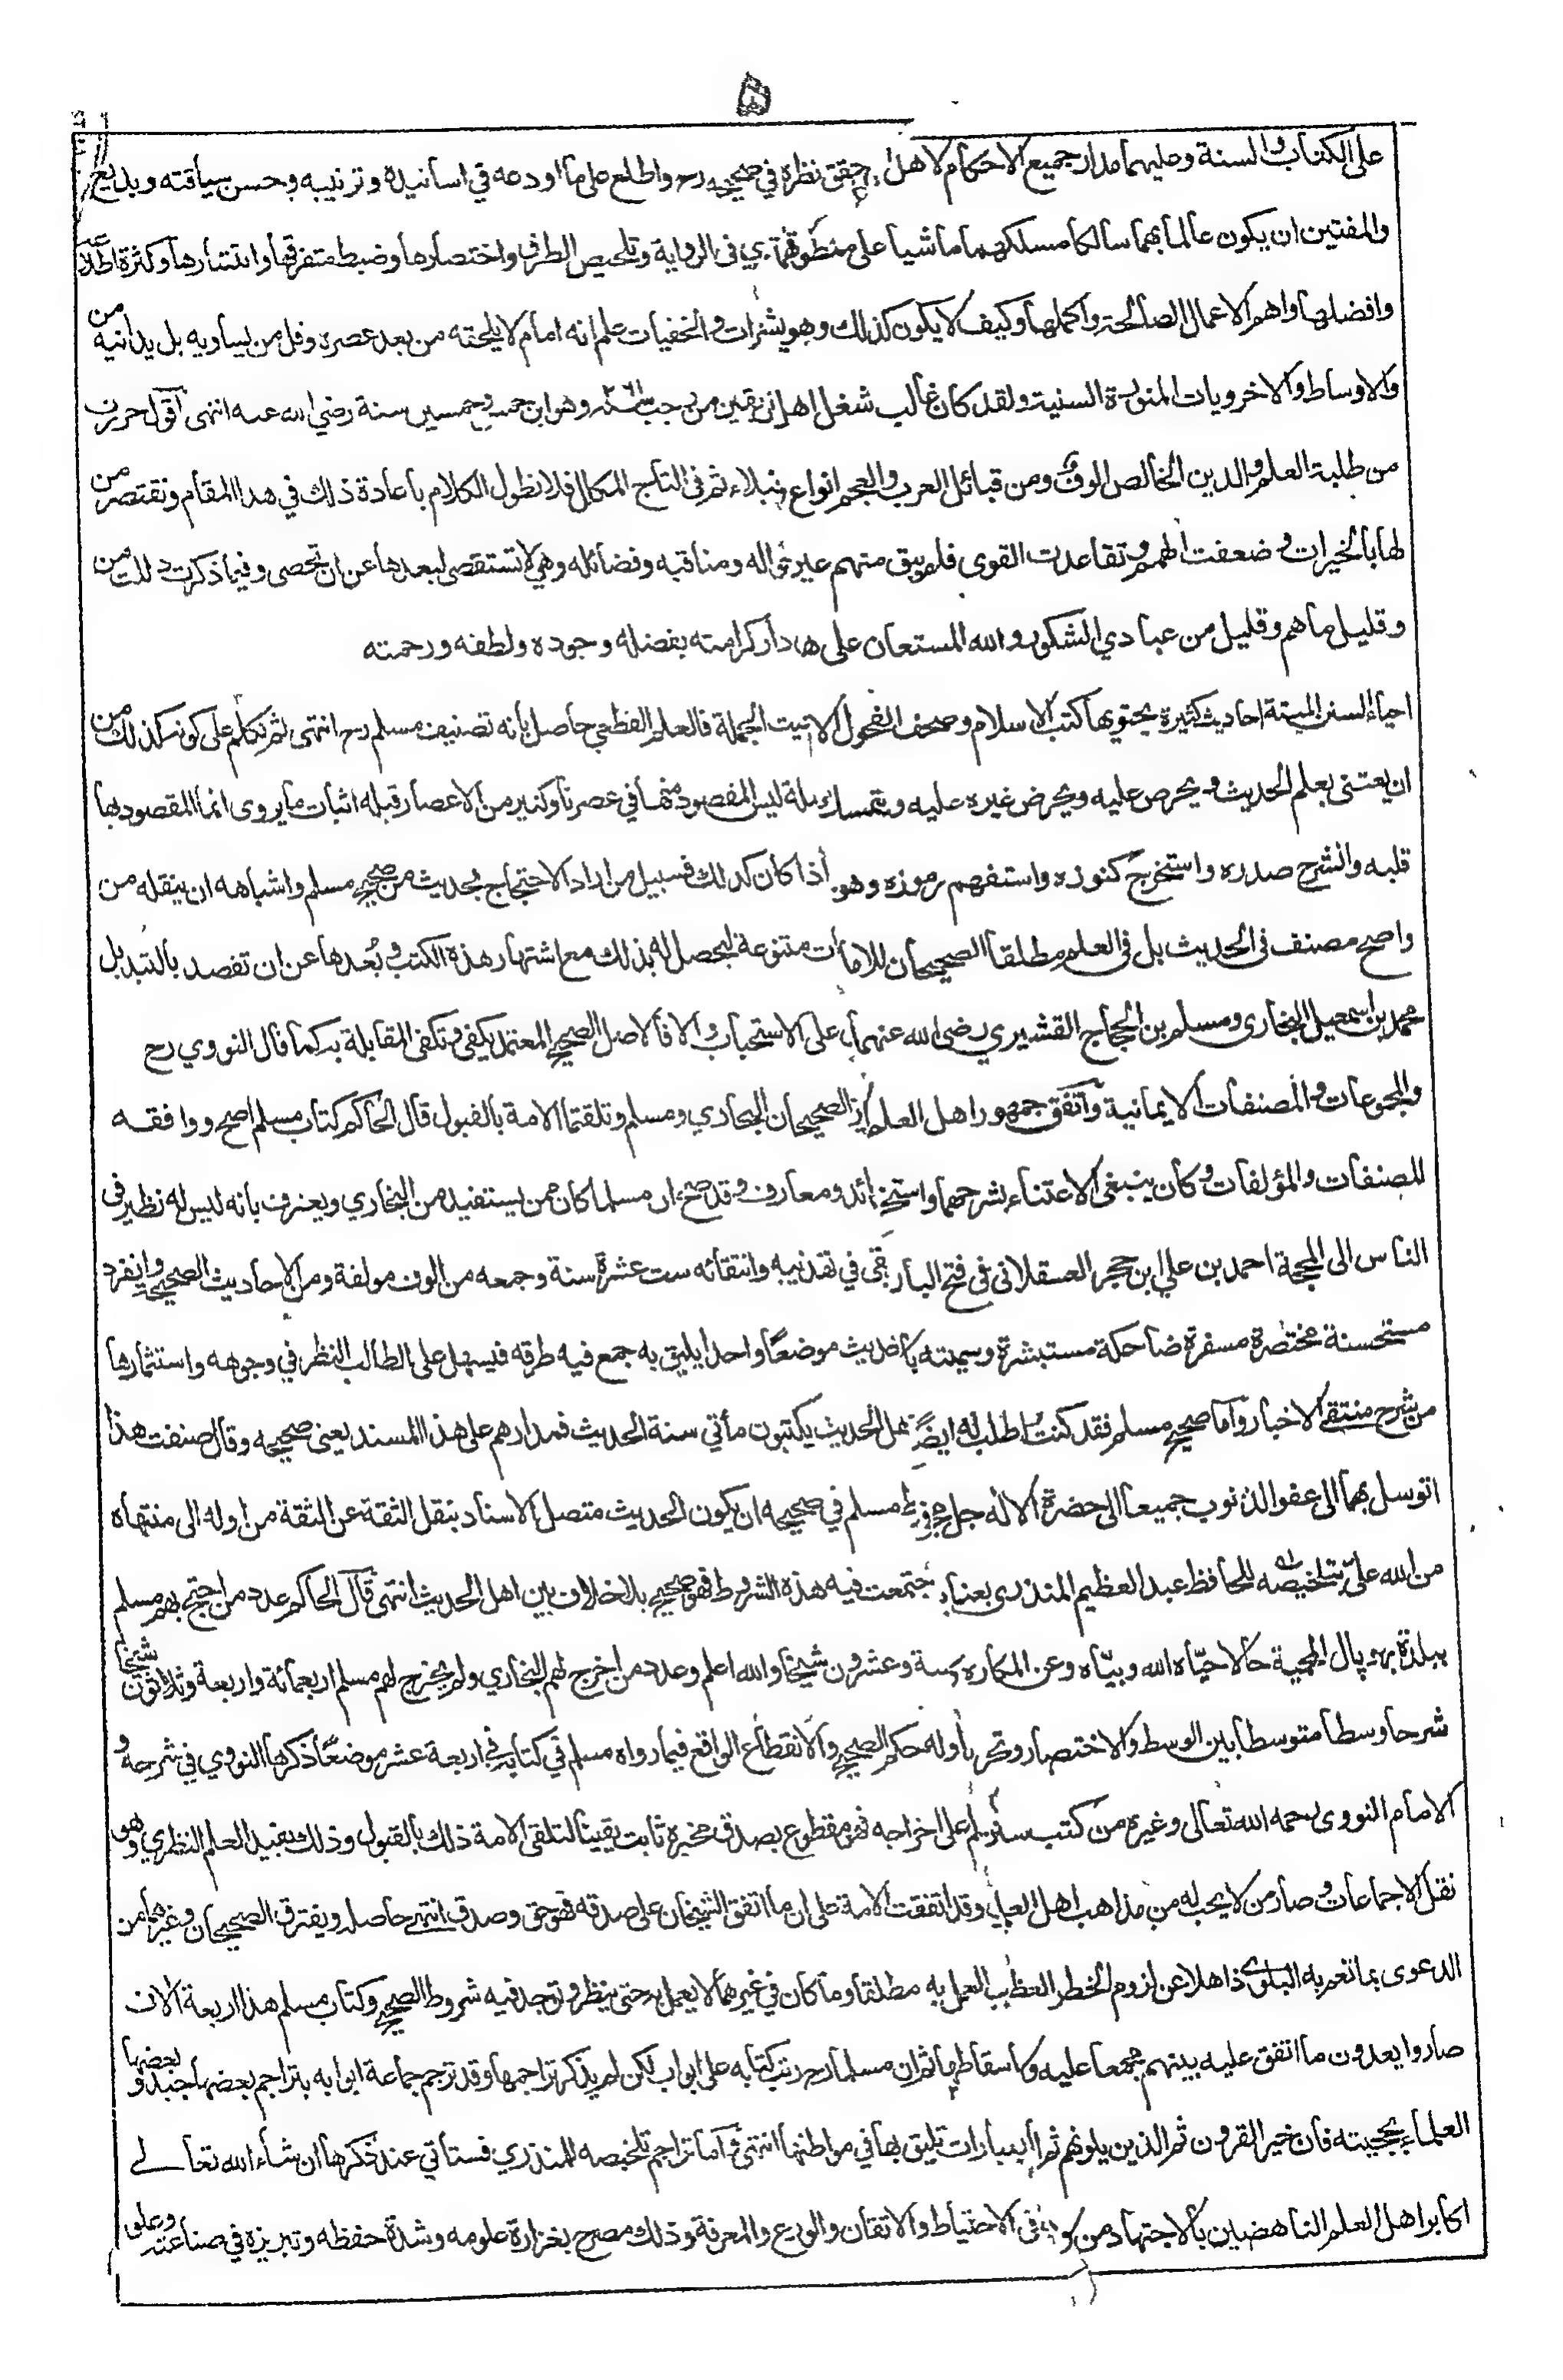 ۵
على الكتاب والسنة وعليهما مدار جميع الاحكام لاهل حقق نظره في صحيحه رح واطلع على ما اودعه في اسانيده وترتيبه وحسن سياقته وبديع
والمفتين ان يكون عالما بهما سالكا مسلكهما ماشيا على منطوقهما الرواية وتلخيص الطرق واختصارها وضبط متفرقها وانتشارها وكثرة اطلا
وافضلها واهم الاعمال الصالحة واكملها وكيف لا يكون كذلك وهو والخفيات علم انه امام لا يلحقه من بعد عصره وقل من يساويه بل يدانيه من
والاوساط والاخرويات السنية ولقد كان غالب شغل اهل من رجب سنة ٢٦١ وهو ابن خمس وخمسين سنة رضي الله عنه انتهى اقول حررت
من طلبة العلم والدين الخالص الوف ومن قبائل العرب والعجم انواع في التاج المكلل فلا نطول الكلام باعادة ذلك في هذا المقام ونقتصر من
لها بالخيرات وضعفت الهمم وتقاعدت القوى فلم يبق منهم غير ومناقبه وفضائله وهي لا تستقصى لبعدها عن ان تحصى وفيما ذكرت دلك من
وقليل ما هم وقليل من عبادي الشكور والله المستعان على دار كرامته بفضله وجوده ولطفه ورحمته
احياء السنن الميتة احاديث كثيرة يحتويها كتب الاسلام وصحف الفحول الجملة فالعلم القطعي حاصل بانه تصنيف مسلم رح انتهى ثم تكلم على كونه كذلك من
ان يعتنى بعلم الحديث ويحرص عليه ويحرض غيره عليه ويتمسك ليس المقصود منها في عصرنا وكثير من الاعصار قبله اثبات ما يروى انما المقصود بها
قلبه وانشرح صدره واستخرج كنوزه واستفهم رموزه وهو اذا كان كذلك فسبيل من اراد الاحتجاج بحديث من صحيح مسلم واشباهه ان ينقله من
واصح مصنف في الحديث بل في العلم مطلقا الصحيحان للاما متنوعة ليحصل له بذلك مع اشتهار هذه الكتب وبُعدها عن ان تقصد بالتبديل
محمد بن اسمعيل البخاري ومسلم بن الحجاج القشيري رضى الله عنهما على الاستحباب والا فالاصل الصحيح المعتمد يكفي وتكفى المقابلة به كما قال النووي رح
والمجوعات والمصنفات الايمانية واتفق جمهور اهل العلم الصحيحان البخاري ومسلم وتلقتها الامة بالقبول قال الحاكم كتاب مسلم اصح ووافقه
للصنفات والمؤلفات وكان ينبغى الاعتناء بشرحهما واستخ ومعارف وقد صح ان مسلما كان ممن يستفيد من البخاري ويعترف بانه ليس له نظير في
الناس الى الحجة احمد بن علي ابن حجر العسقلاني في فتح البار في تهذيبه وانتقائه ست عشرة سنة وجمعه من الوف مولفة ومن الاحاديث الصحيحة وانفرد
مستحسنة مختصرة مسفرة ضاحكة مستبشرة وسميته موضعًا واحدا يليق به جمع فيه طرقه فيسهل على الطالب النظر في وجوهه واستثمارها
من شرح منتقى الاخبار واما صحيح مسلم فقد كنت اطلب له ايضًا الحديث يكتبون مأتي سنة الحديث فمدارهم على هذا المسند يعني صحيحه وقال صنفت هذا
اتوسل بهما الى عفو الذنوب جميعا الى حضرة الاله جل مسلم في صحيحه ان يكون الحديث متصل الاسناد بنقل الثقة عن الثقة من اوله الى منتهاه
من الله علي بتلخيصه للحافظ عبد العظيم المنذرى بعنا جتمعت فيه هذه الشروط فهو صحيح بلا خلاف بين اهل الحديث انتهى قال الحاكم عدد من احتج بهم مسلم
ببلدة بهوپال المحمية حالا حيّاه الله وبيّاه وعن المكاره سة وعشرون شيخا والله اعلم وعدد من اخرج لهم البخاري ولم يخرج لهم مسلم اربعمائة واربعة وثلاثون شيخا
شرحا وسطا متوسطا بين الوسط والاختصار وتحر اوله حكم الصحيح والانقطاع الواقع فيما رواه مسلم في كتابه في اربعة عشر موضعًا ذكرها النووي في شرحه و
الامام النووى رحمه الله تعالى وغيره من كتب على اخراجه فهو مقطوع بصدق مخبره ثابت يقينا لتلقى الامة ذلك بالقبول وذلك يفيد العلم النظري وهو
نقل الاجماعات وصار من لا يحب له من مذاهب اهل العلم وقد اتفقت الامة على ان ما اتفق الشيخان على صدقه فهو حق وصدق انتهى حاصله ويفترق الصحيحان وغيرهما من
الدعوى بما تعم به البلوى ذاهلا عن لزوم الخطر العمل به مطلقا وما كان في غيرهما لا يعمل به حتى ينظر وتوجد فيه شروط الصحيح وكتاب مسلم هذا اربعة الاف
صاروا يعدون ما اتفق عليه بينهم مجمعا عليه و باسقاطها ثم ان مسلما رح رتب كتابه على ابواب لكن لم يذكر تراجمها وقد ترجم جماعة ابوابه بتراجم بعضها جيد و بعضها
العلماء بحجيته فان خير القرون ثم الذين يلونهم ثم بعبارات تليق بها في مواطنها انتهى واما تراجم تلخيصه للمنذري فستاتي عند ذكرها ان شاء الله تعالى
اكابر اهل العلم الناهضين بالاجتهاد من في الاحتياط والاتقان والورع والمعرفة وذلك مصرح بغزارة علومه وشدة حفظه وتبريزه في صناعته وعلو